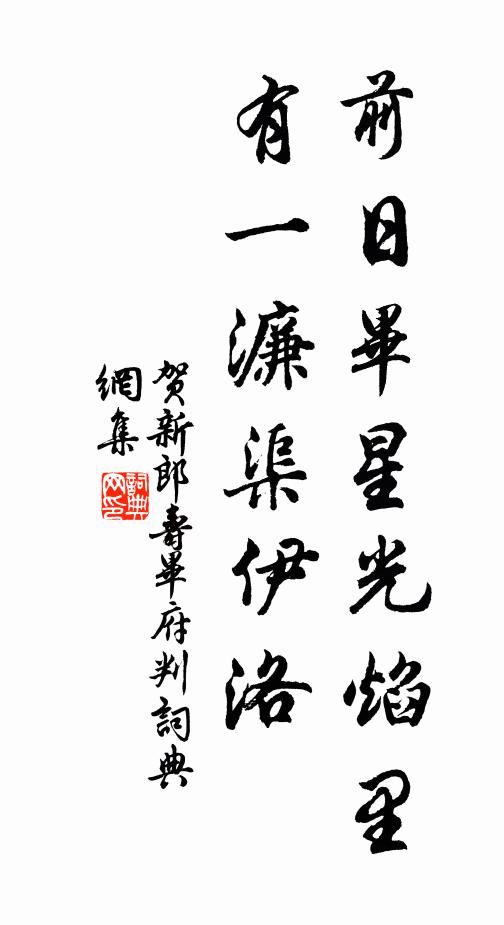 前日畢星光焰里
有一濂渠伊洛
贺新郎壽畢府判詞典
網集
詞典网印